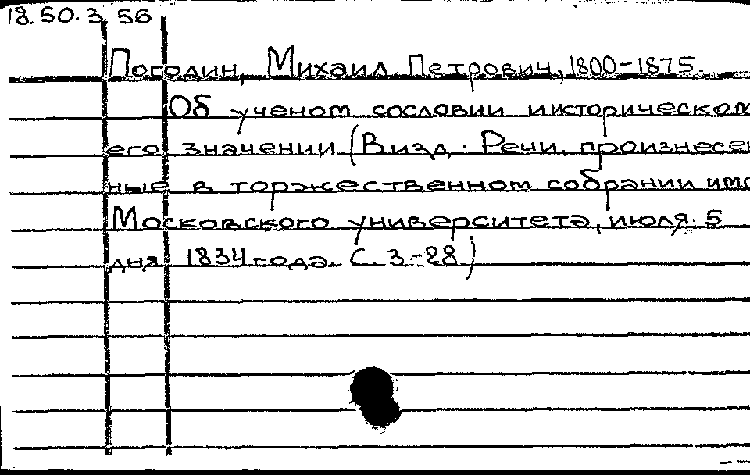 18.50.3.56
Погодин, Михаил Петрович, 1800-1875.
Об ученом сословии и историческом
его значении (В изд.: Речи, произнесен
ные в торжественном собрании имп
Московского университета, июля 5
дня 1834 года. С. 3-28)